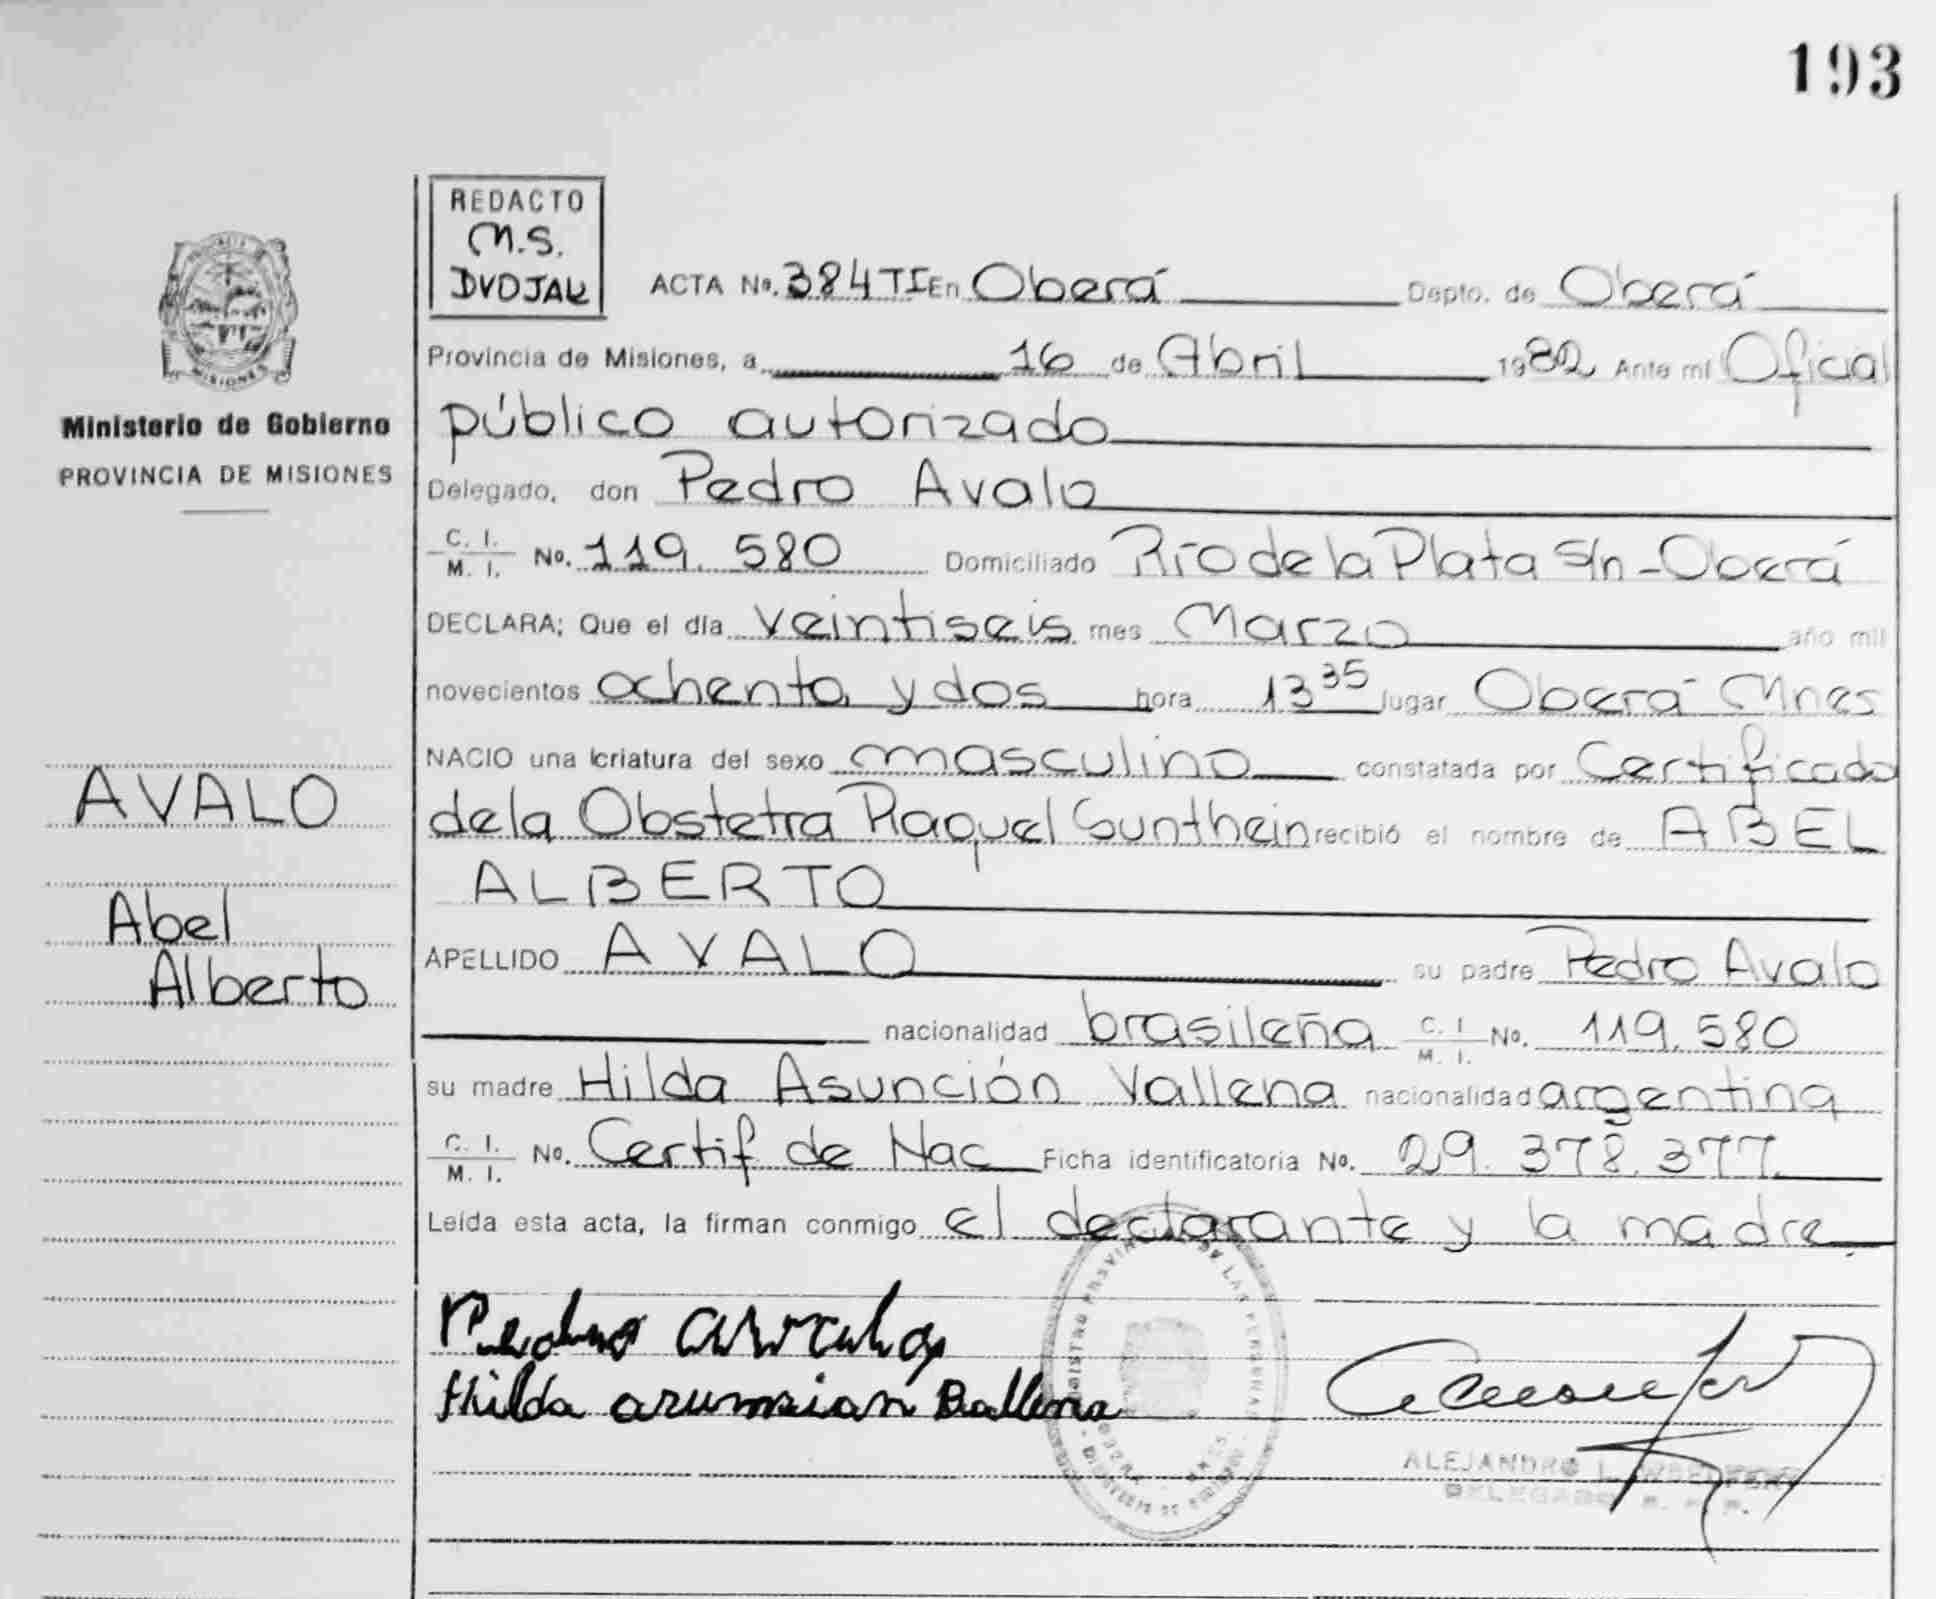 193
REDACTO
M.S.
DVDJAK
ACTA No. 384 TI En Oberá Depto. de Oberá
Provincia de Misiones, a 16 de Abril 1982 Ante mí Oficial
público autorizado
Delegado, don Pedro Avalo
C. I. M. I. No. 119.580 Domiciliado Río de la Plata S/n - Oberá
DECLARA; Que el día veintiseis mes Marzo año mil
novecientos ochenta y dos hora 13 35 lugar Oberá Mnes
NACIO una criatura del sexo masculino constatada por Certificado
de la Obstetra Raquel Sunthein recibió el nombre de ABEL
ALBERTO
APELLIDO AVALO su padre Pedro Avalo
nacionalidad brasileña C. I. M. I. No. 119.580
su madre Hilda Asunción Vallena nacionalidad argentina
C. I. M. I. No. Certif de Nac Ficha identificatoria No. 29.378.377.
Leída esta acta, la firman conmigo el declarante y la madre.
Hilda Ballena
ALEJANDRO L.
DELEGADO
MISIONES
Ministerio de Gobierno
PROVINCIA DE MISIONES
AVALO
Abel
Alberto